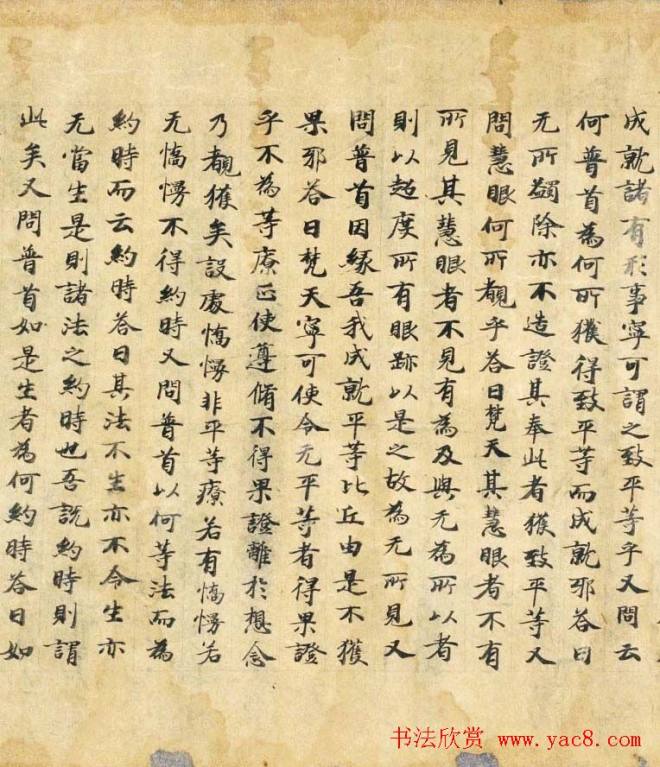 成就諸有形事寧可謂之致平等乎又問云
何普首為何所獲得致平等而成就邪荅曰
无所蠲除亦不造證其奉此者獲致平等又
問慧眼何所覩乎荅曰梵天其慧眼者不有
所見其慧眼者不見有為及與无為所以者
則以超度所有眼跡以是之故為无所見又
問普首因緣吾我成就平等比丘由是不獲
果邪荅曰梵天寧可使令无平等者得果證
乎不為等療正使遵脩不得果證離於想念
乃覩獲矣設處憍慢非平等療若有憍慢若
无憍慢不得約時又問普首以何等法而為
約時而云約時荅曰其法不生亦不令生亦
无當生是則諸法之約時也吾説約時則謂
此矣又問普首如是生者為何約時荅曰如
书法欣赏 www.yac8.com